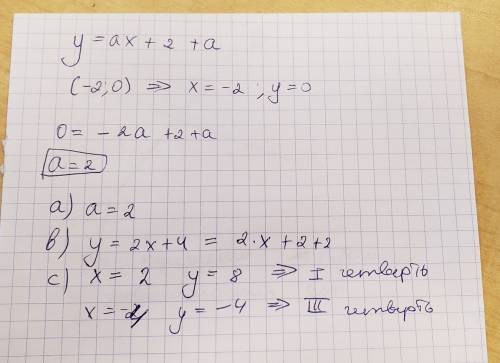 y = ax + 2 + a
(-2; 0) ⇒ x = -2 ; y = 0
0 = - 2a + 2 + a
a = 2
a) a = 2
b) y = 2x + 4 = 2·x + 2 + 2
c) x = 2 y = 8 ⇒ I четверть
x = -4 y = -4 ⇒ III четверть